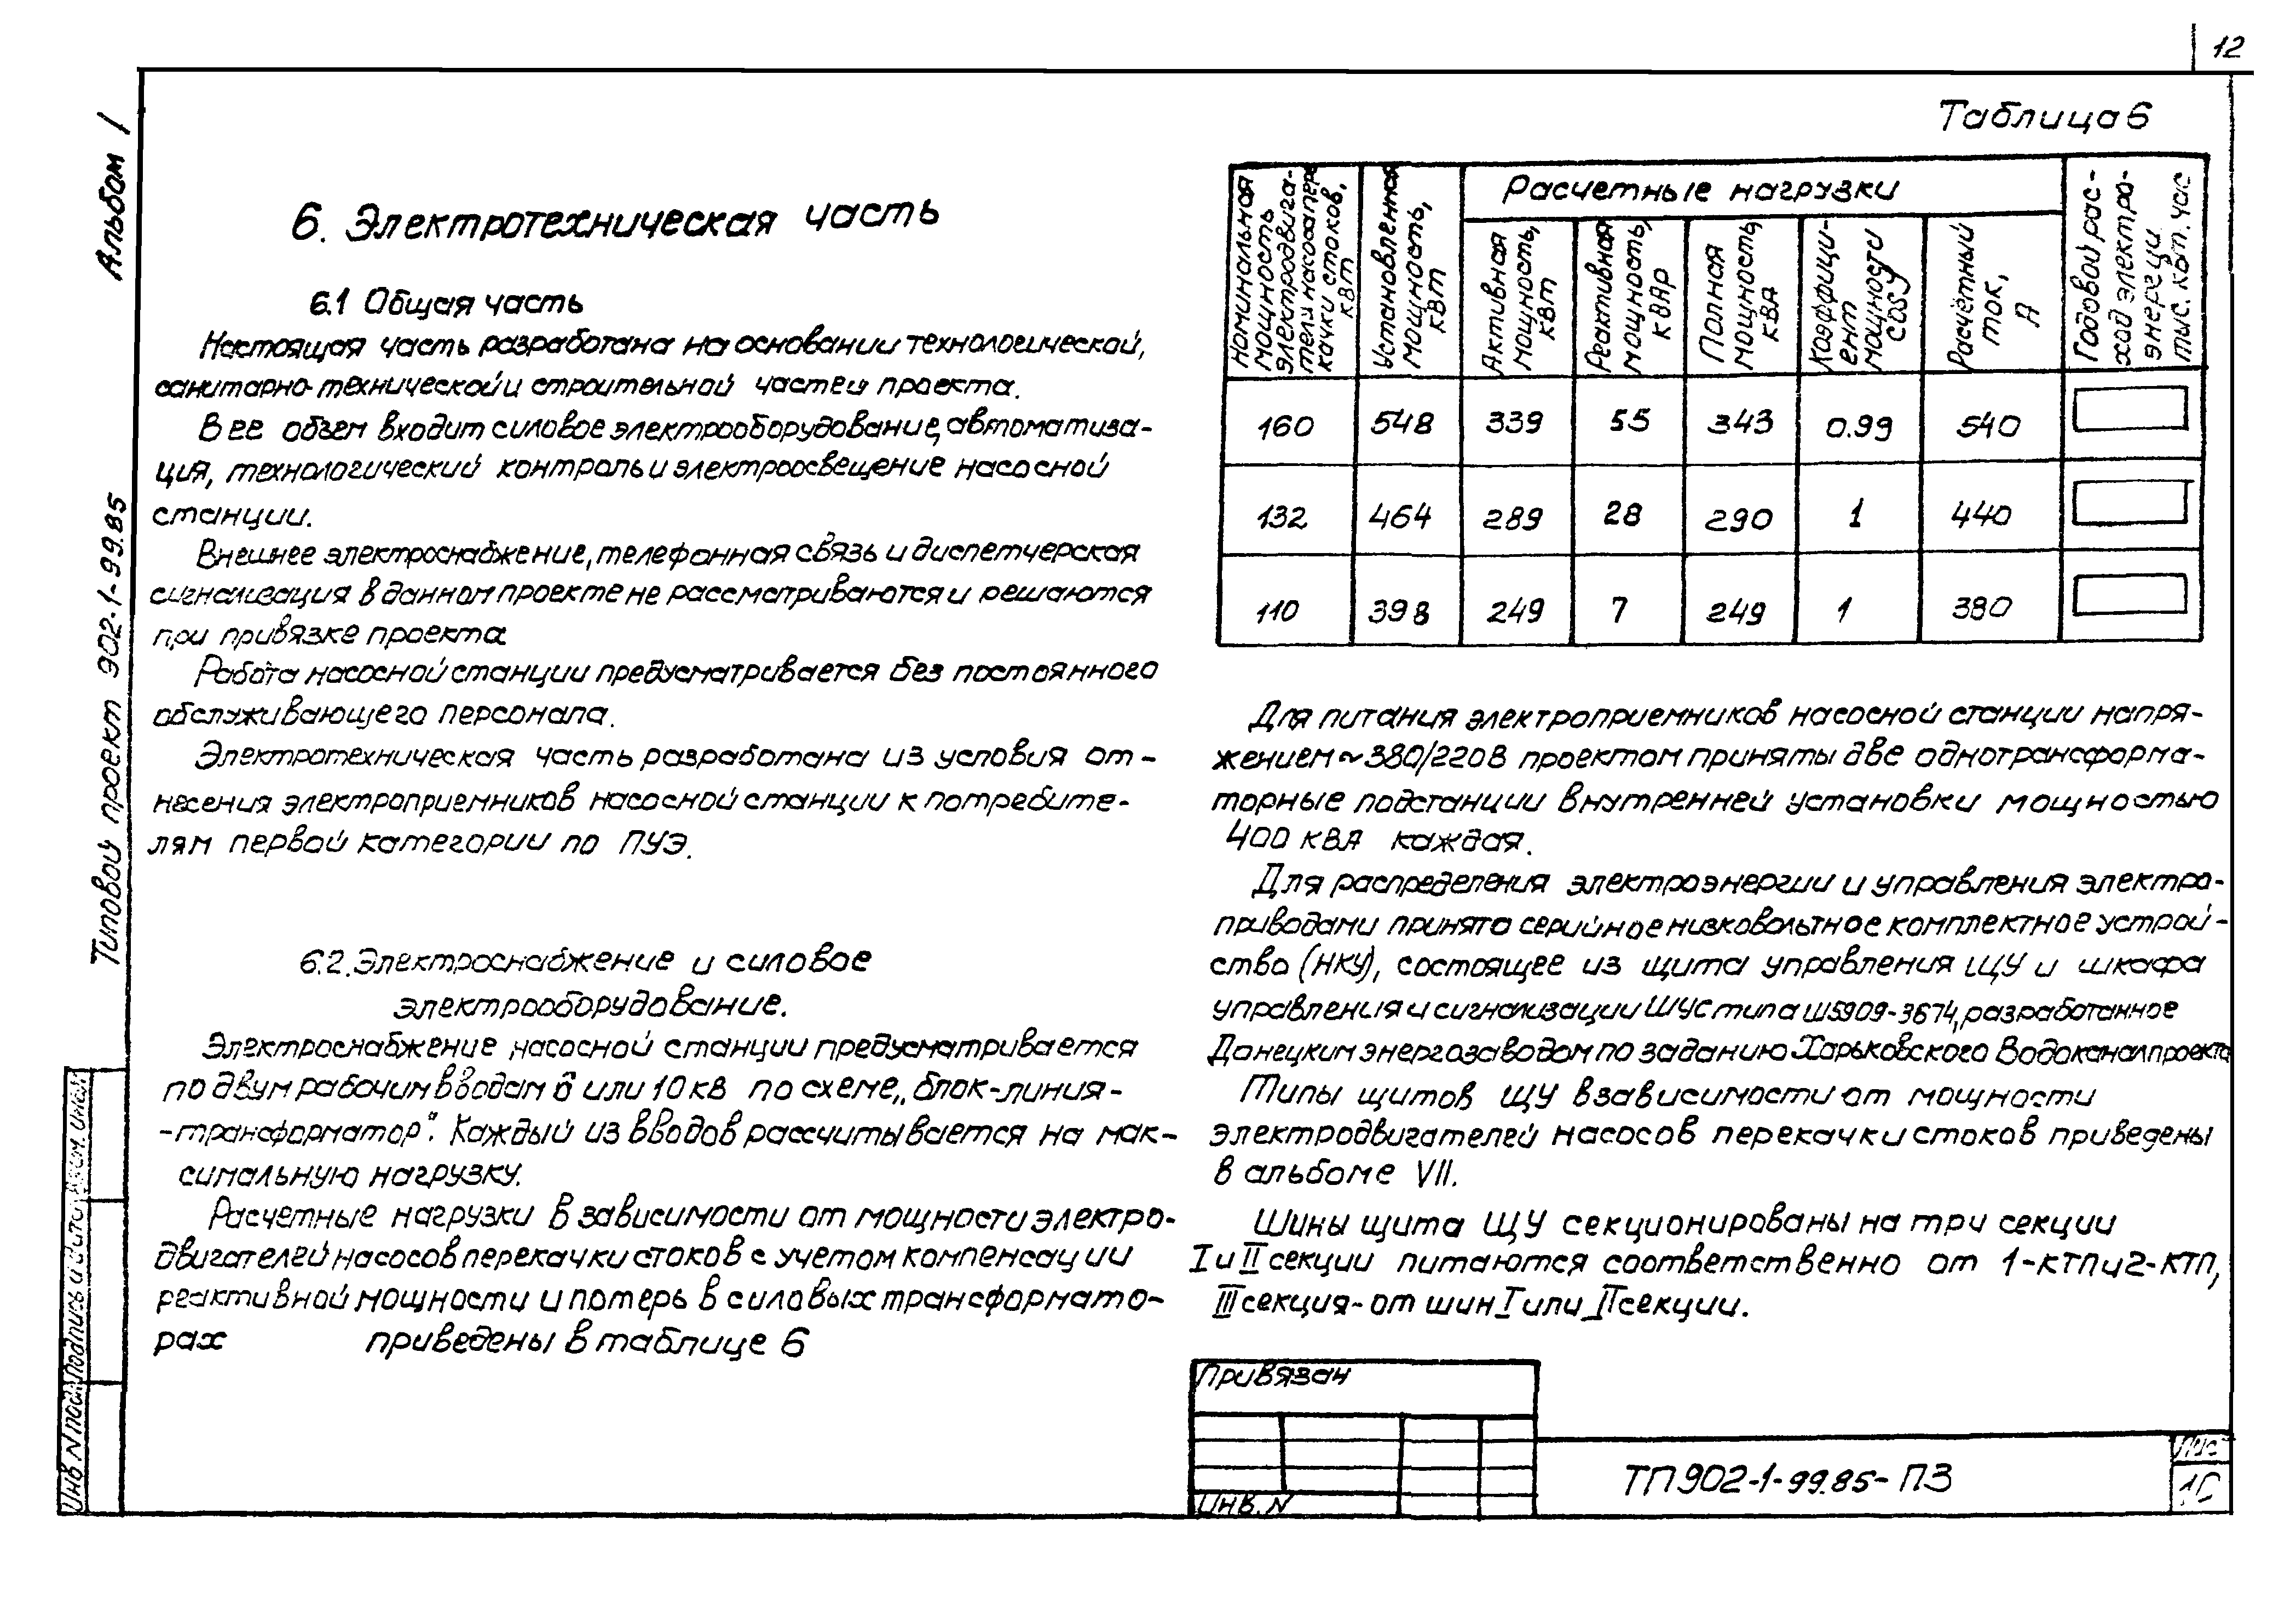 12
Альбом 1
Типовой проект 902-1-99.85
6. Электротехническая часть
6.1 Общая часть
Настоящая часть разработана на основании технологической,
санитарно-технической и строительной частей проекта.
В ее объем входит силовое электрооборудование, автоматиза-
ция, технологический контроль и электроосвещение насосной
станции.
Внешнее электроснабжение, телефонная связь и диспетчерская
сигнализация в данном проекте не рассматриваются и решаются
при привязке проекта
Работа насосной станции предусматривается без постоянного
обслуживающего персонала.
Электротехническая часть разработана из условия от-
несения электроприемников насосной станции к потребите-
лям первой категории по ПУЭ.
6.2. Электроснабжение и силовое
электрооборудование.
Электроснабжение насосной станции предусматривается
по двум рабочим вводам 6 или 10 кв по схеме „блок-линия-
-трансформатор". Каждый из вводов рассчитывается на мак-
симальную нагрузку.
Расчетные нагрузки в зависимости от мощности электро-
двигателей насосов перекачки стоков с учетом компенсации
реактивной мощности и потерь в силовых трансформато-
рах приведены в таблице 6
Таблица 6
Номинальная мощность электродвига-тели насоса пере качки стоков, квт
Установленная мощность, квт
Расчетные нагрузки
Активная мощность, квт
Реактивная мощность, кВАр
Полная мощность, кВА
Коэффици-ент мощности cosφ
Расчётный ток, А
Годовой рас-ход электро-энергии тыс. квт. час
160 548 339 55 343 0.99 540
132 464 289 28 290 1 440
110 398 249 7 249 1 380
Для питания электроприемников насосной станции напря-
жением ~380/220В проектом приняты две однотрансформа-
торные подстанции внутренней установки мощностью
400 кВА каждая.
Для распределения электроэнергии и управления электро-
приводами принято серийное низковольтное комплектное устрой-
ство (НКУ), состоящее из щита управления ЩУ и шкафа
управления и сигнализации ШУС типа Ш5909-3674, разработанное
Донецким энергозаводом по заданию Харьковского Водоканалпроекта
Типы щитов ЩУ в зависимости от мощности
электродвигателей насосов перекачки стоков приведены
в альбоме VII.
Шины щита ЩУ секционированы на три секции
I и II секции питаются соответственно от 1-КТП и 2-КТП,
III секция-от шин I или II секции.
Привязан
Инв. N
ТП 902-1-99.85-ПЗ
Лис
10
Инв N подл
Подпись и дата
Взам. инв.